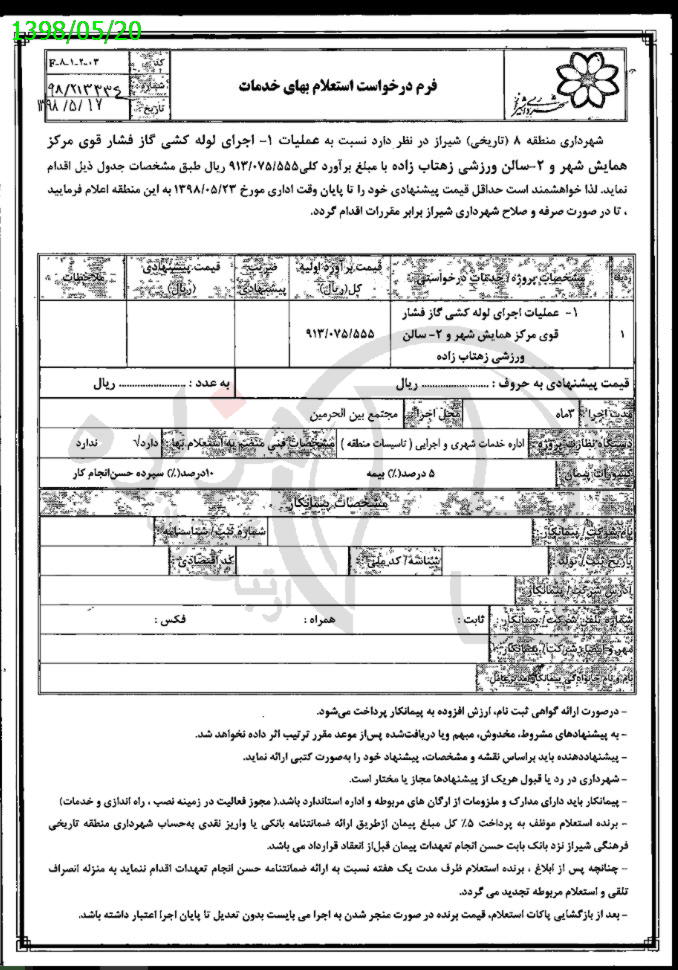 1398/05/20
کد F-۸-۱-۲-۰۳
شماره ۹۸/۲۱۳۳۳۶
تاریخ ۱۳۹۸/۵/۱۷
فرم درخواست استعلام بهای خدمات
شهرداری شیراز
شهرداری منطقه ۸ (تاریخی) شیراز در نظر دارد نسبت به عملیات ۱- اجرای لوله کشی گاز فشار قوی مرکز
همایش شهر و ۲-سالن ورزشی زهتاب زاده با مبلغ برآورد کلی۹۱۳/۰۷۵/۵۵۵ ریال طبق مشخصات جدول ذیل اقدام
نماید. لذا خواهشمند است حداقل قیمت پیشنهادی خود را تا پایان وقت اداری مورخ ۱۳۹۸/۰۵/۲۳ به این منطقه اعلام فرمایید
، تا در صورت صرفه و صلاح شهرداری شیراز برابر مقررات اقدام گردد.
ردیف مشخصات پروژه / خدمات درخواستی قیمت برآورد اولیه کل(ریال) ضریب پیشنهادی قیمت پیشنهادی (ریال) ملاحظات
۱ ۱- عملیات اجرای لوله کشی گاز فشار
قوی مرکز همایش شهر و ۲- سالن ۹۱۳/۰۷۵/۵۵۵
ورزشی زهتاب زاده
قیمت پیشنهادی به حروف : ........................ ریال به عدد : ........................ ریال
مدت اجرا : ۳ماه محل اجرا : مجتمع بین الحرمین
دستگاه نظارت پروژه : اداره خدمات شهری و اجرایی ( تاسیسات منطقه ) مشخصات فنی منضم به استعلام بها : دارد√ ندارد
کسورات پیمان ۵ درصد(٪) بیمه ۱۰درصد(٪) سپرده حسن‌انجام کار
مشخصات پیمانکار
نام شرکت / پیمانکار : شماره ثبت / شناسنامه :
تاریخ ثبت / تولد : شناسه / کد ملی : کد اقتصادی :
آدرس شرکت / پیمانکار :
شماره تلفن شرکت / پیمانکار : ثابت : همراه : فکس :
مهر و امضا شرکت / پیمانکار :
نام و نام خانوادگی پیمانکار / مدیرعامل :
- درصورت ارائه گواهی ثبت نام، ارزش افزوده به پیمانکار پرداخت می‌شود.
- به پیشنهادهای مشروط، مخدوش، مبهم ویا دریافت‌شده پس‌از موعد مقرر ترتیب اثر داده نخواهد شد.
- پیشنهاددهنده باید براساس نقشه و مشخصات، پیشنهاد خود را به‌صورت کتبی ارائه نماید.
- شهرداری در رد یا قبول هریک از پیشنهادها مجاز یا مختار است.
- پیمانکار باید دارای مدارک و ملزومات از ارگان های مربوطه و اداره استاندارد باشد.( مجوز فعالیت در زمینه نصب ، راه اندازی و خدمات)
- برنده استعلام موظف به پرداخت ۵٪ کل مبلغ پیمان ازطریق ارائه ضمانتنامه بانکی یا واریز نقدی به‌حساب شهرداری منطقه تاریخی
فرهنگی شیراز نزد بانک بابت حسن انجام تعهدات پیمان قبل‌از انعقاد قرارداد می باشد.
- چنانچه پس از ابلاغ ، برنده استعلام ظرف مدت یک هفته نسبت به ارائه ضمانتنامه حسن انجام تعهدات اقدام ننماید به منزله انصراف
تلقی و استعلام مربوطه تجدید می گردد.
- بعد از بازگشایی پاکات استعلام، قیمت برنده در صورت منجر شدن به اجرا می بایست بدون تعدیل تا پایان اجرا اعتبار داشته باشد.